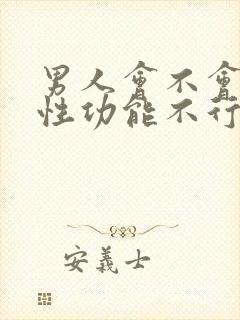 男人會不會
性功能不行
安義士